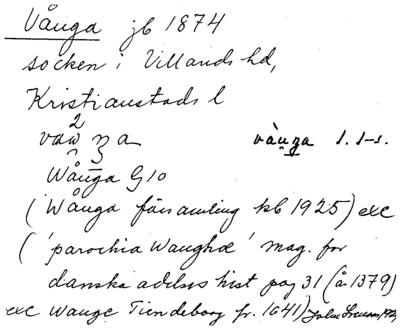 Vånga jb 1874
socken i Villands hd,
Kristianstads l
Wånga G10
(Wånga församling kb 1925) exc
('parochia Waunghæ' mag. for
danske adels hist pag 31 (å 1379)
exc Waunge Tiendeborg fr. 1641)